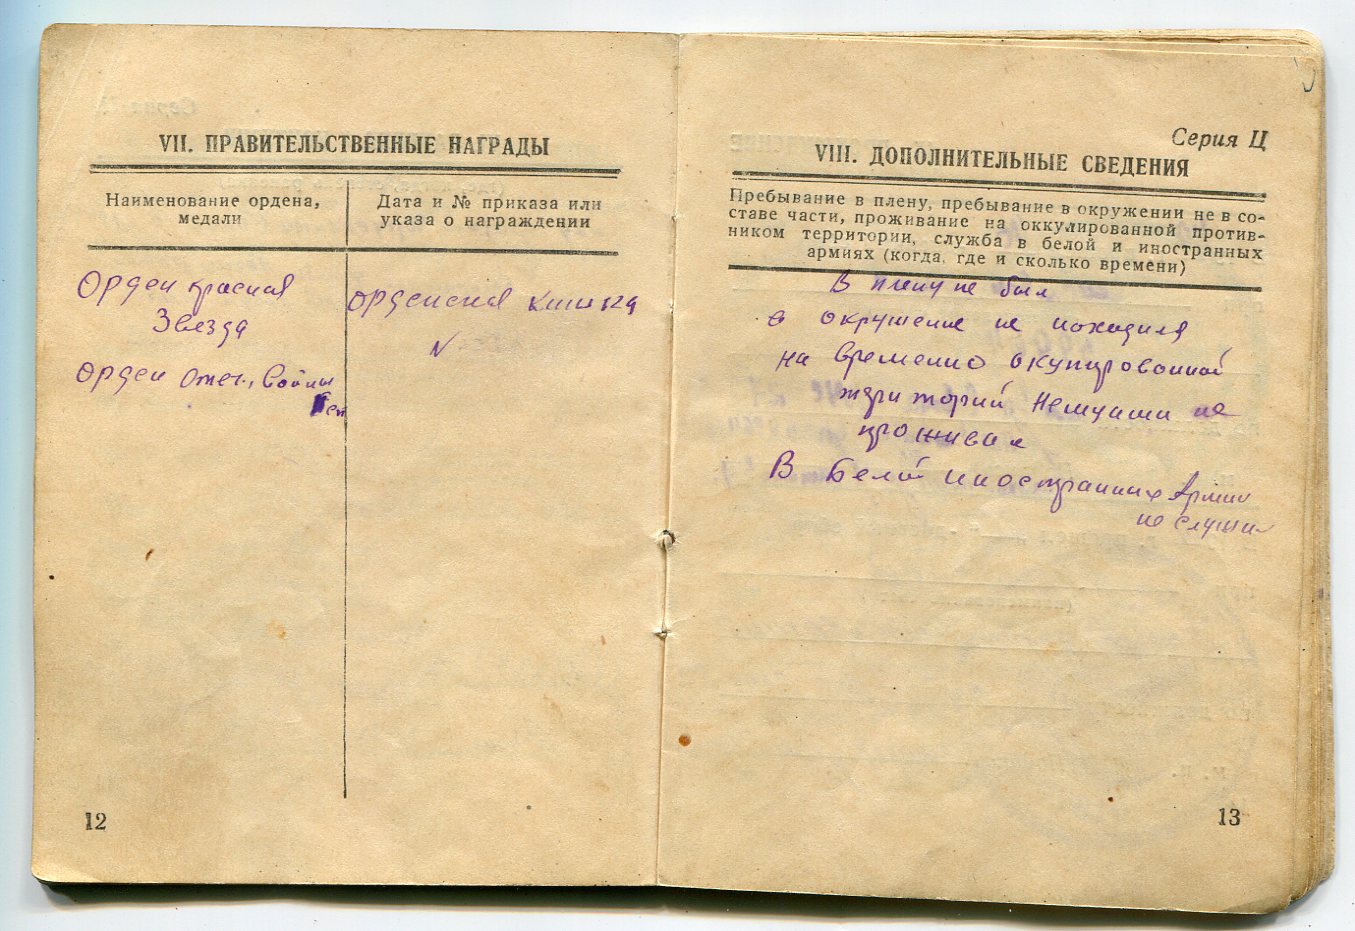 VII. ПРАВИТЕЛЬСТВЕННЫЕ НАГРАДЫ
Наименование ордена,
медали
Дата и № приказа или
указа о награждении
Орден красная
Звезда
орденская книжка
N
орден отеч. войны
12
Серия Ц
VIII. ДОПОЛНИТЕЛЬНЫЕ СВЕДЕНИЯ
Пребывание в плену, пребывание в окружении не в со-
ставе части, проживание на оккупированной против-
ником территории, служба в белой и иностранных
армиях (когда, где и сколько времени)
В плену не был
в окружение не находился
на временно окупированной
территорий Немцами не
проживал
В Белой иностранных Армии
не служил
13